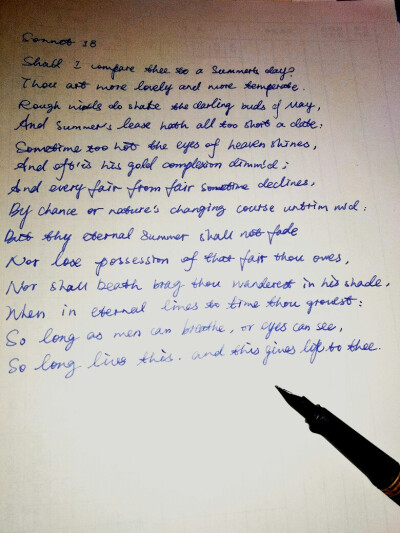 Sonnet 18
Shall I compare thee to a Summer's day?
Thou art more lovely and more temperate.
Rough winds do shake the darling buds of May,
And Summer's lease hath all too short a date:
Sometime too hot the eyes of heaven shines,
And oft is his gold complexion dimm'd;
And every fair from fair sometime declines,
By chance or nature's changing course untrimm'd:
But thy eternal Summer shall not fade
Nor lose possession of that fair thou owes,
Nor shall Death brag thou wanderest in his shade,
When in eternal lines to time thou growest:
So long as men can breathe, or eyes can see,
So long lives this. and this gives life to thee.